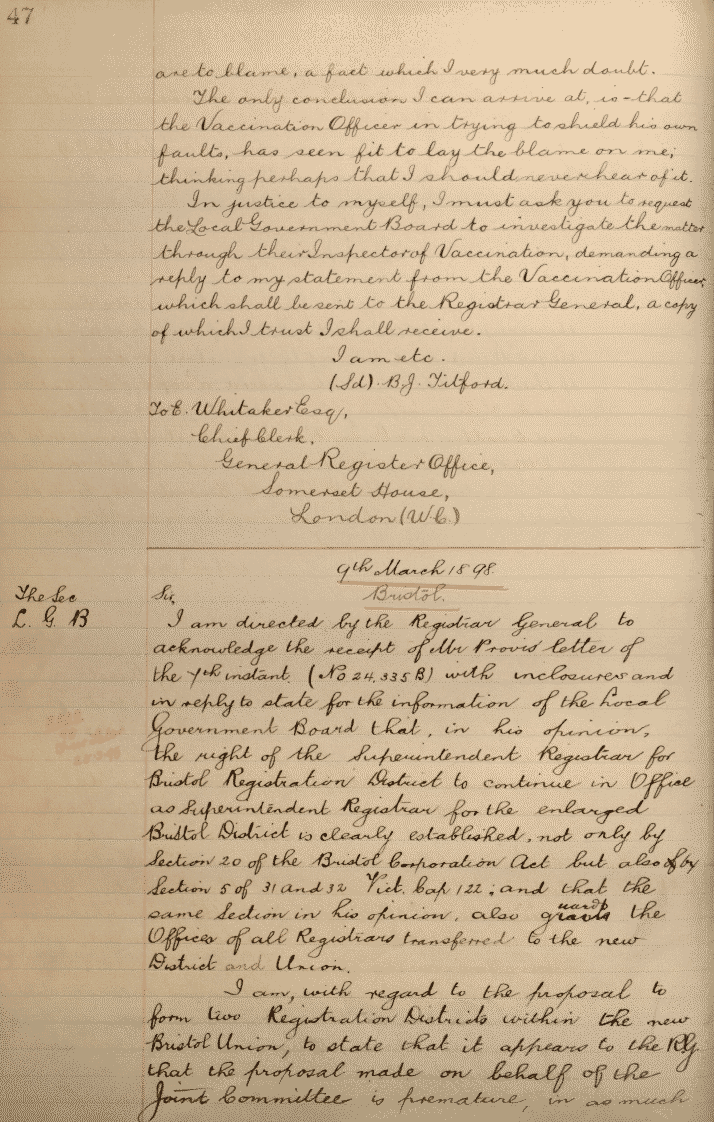 47
are to blame, a fact which I very much doubt.
The only conclusion I can arrive at, is - that
the Vaccination Officer in trying to shield his own
faults, has seen fit to lay the blame on me;
thinking perhaps that I should never hear of it.
In justice to myself, I must ask you to request
the Local Government Board to investigate the matter
through their Inspector of Vaccination, demanding a
reply to my statement from the Vaccination Officer,
which shall be sent to the Registrar General, a copy
of which I trust I shall receive.
I am etc.
(Sd). B.J. Titford.
To E. Whitaker Esq,
Chief Clerk,
General Register Office,
Somerset House,
London (W.C.)
9th March 1898.
The Sec
L. G. B
Bristol.
Sir,
I am directed by the Registrar General to
acknowledge the receipt of Mr Provis' letter of
the 7th instant (No 24,335 B) with inclosures and
in reply to state for the information of the Local
Government Board that, in his opinion,
the right of the Superintendent Registrar for
Bristol Registration District to continue in Office
as Superintendent Registrar for the enlarged
Bristol District is clearly established, not only by
Section 20 of the Bristol Corporation Act but also by
Section 5 of 31 and 32 Vict. Cap 122; and that the
same Section in his opinion, also guards the
Offices of all Registrars transferred to the new
District and Union.
I am, with regard to the proposal to
form two Registration Districts within the new
Bristol Union, to state that it appears to the RG
that the proposal made on behalf of the
Joint Committee is premature, in as much